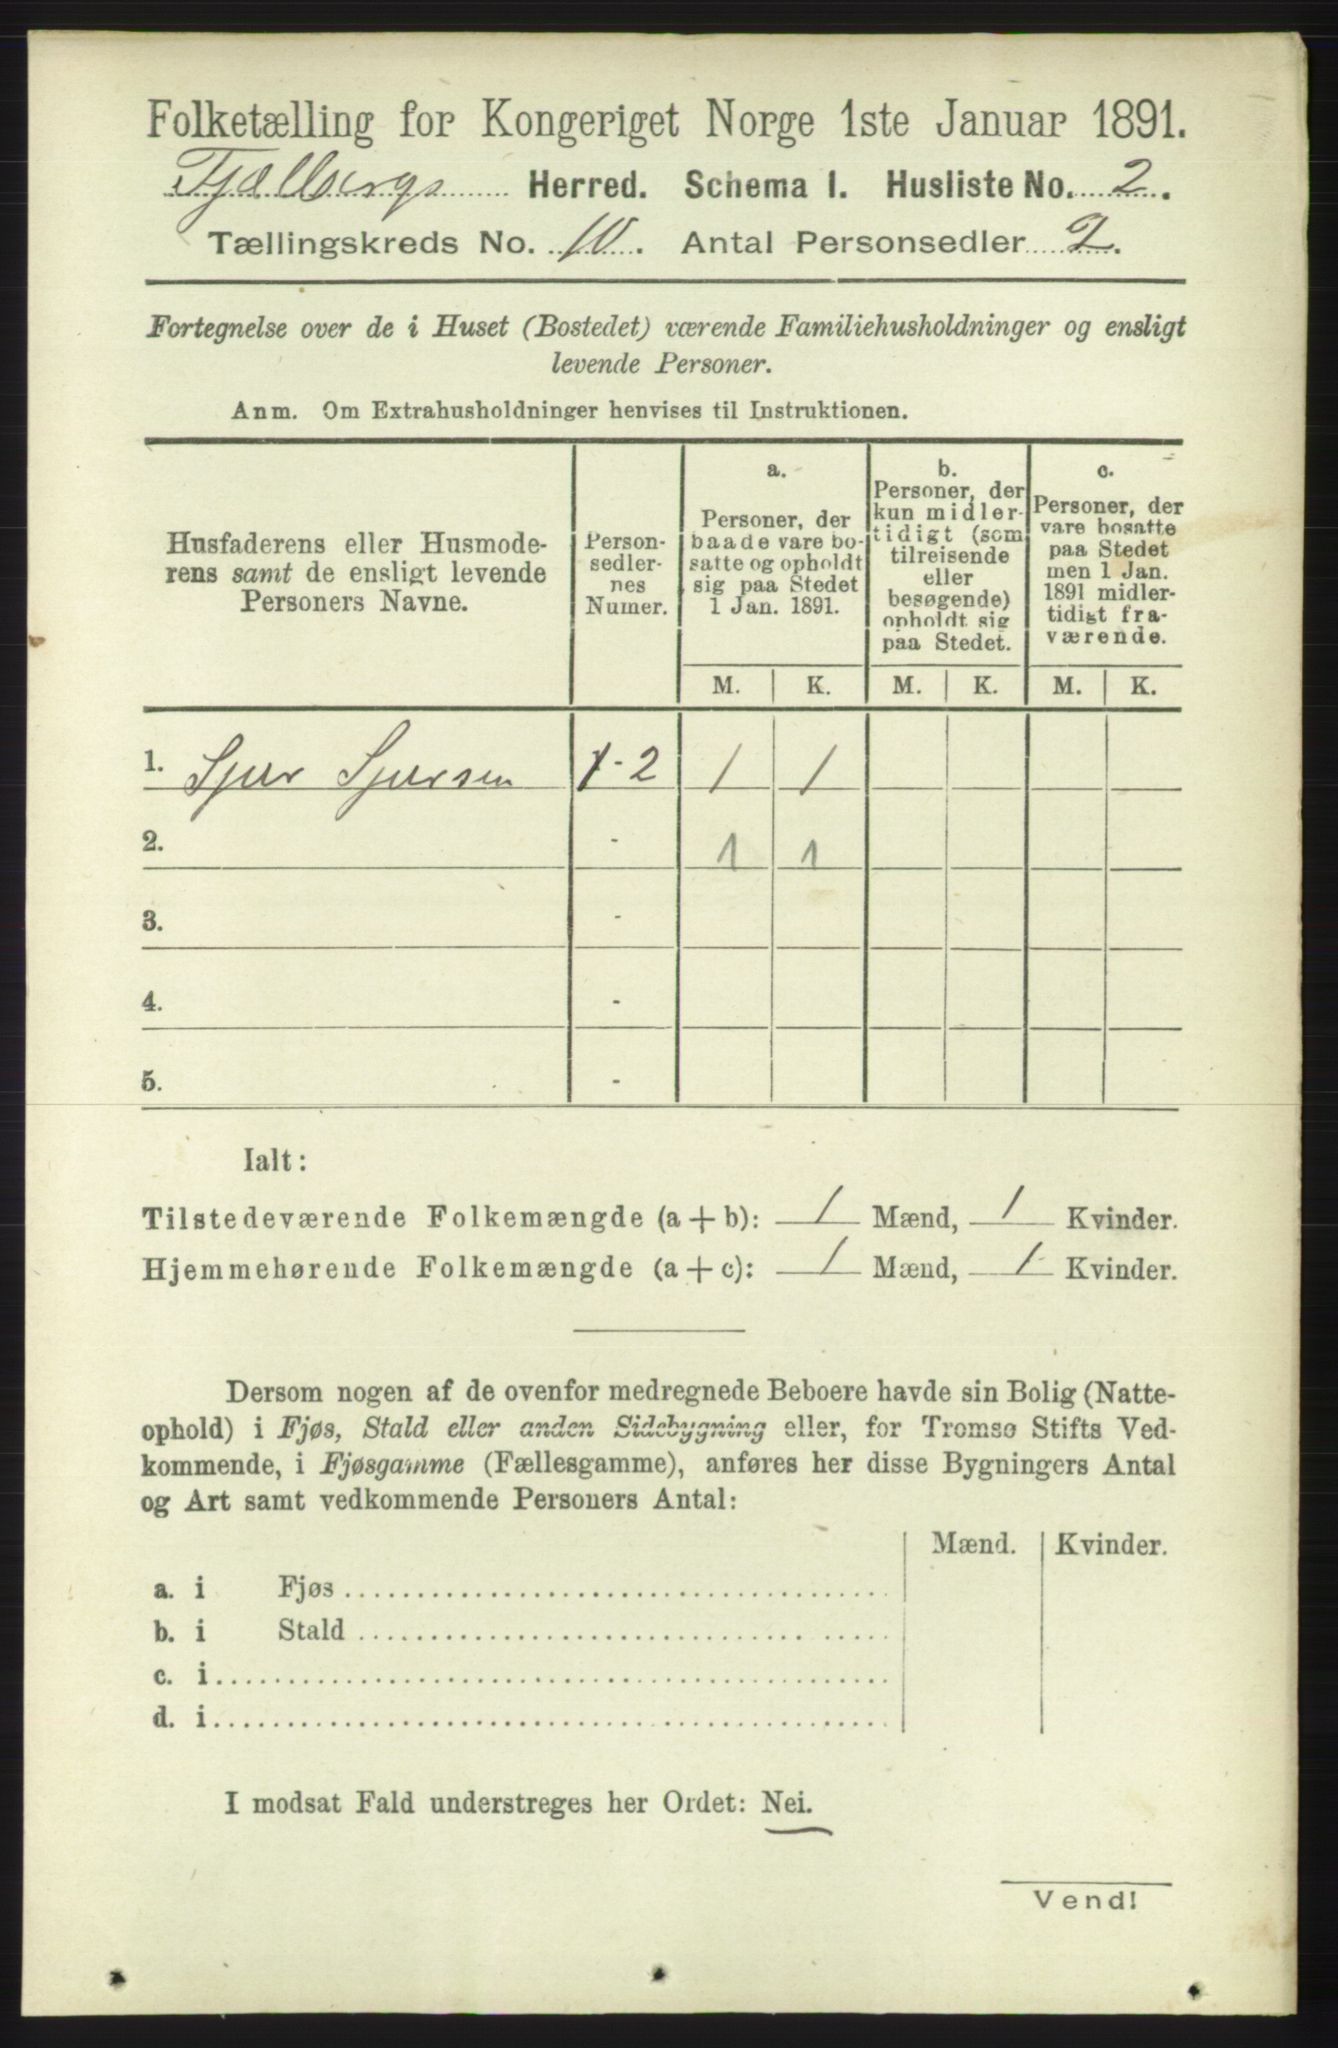 Folketælling for Kongeriget Norge 1ste Januar 1891.
Fjælbergs Herred. Schema I. Husliste No. 2.
Tællingskreds No. 10. Antal Personsedler 2.
Fortegnelse over de i Huset (Bostedet) værende Familiehusholdninger og ensligt
levende Personer.
Anm. Om Extrahusholdninger henvises til Instruktionen.
Husfaderens eller Husmode-
rens samt de ensligt levende
Personers Navne.
Person-
sedler-
nes
Numer.
a.
Personer, der
baade vare bo-
satte og opholdt
sig paa Stedet
1 Jan. 1891.
b.
Personer, der
kun midler-
tidigt (som
tilreisende
eller
besøgende)
opholdt sig
paa Stedet.
c.
Personer, der
vare bosatte
paa Stedet
men 1 Jan.
1891 midler-
tidigt fra-
værende.
M. K. M. K. M. K.
1. Sjur Sjursen 1-2 1 1
2. - 1 1
3. -
4. -
5. -
Ialt:
Tilstedeværende Folkemængde (a + b): 1 Mænd, 1 Kvinder.
Hjemmehørende Folkemængde (a + c): 1 Mænd, 1 Kvinder.
Dersom nogen af de ovenfor medregnede Beboere havde sin Bolig (Natte-
ophold) i Fjøs, Stald eller anden Sidebygning eller, for Tromsø Stifts Ved-
kommende, i Fjøsgamme (Fællesgamme), anføres her disse Bygningers Antal
og Art samt vedkommende Personers Antal:
Mænd. Kvinder.
a. i Fjøs
b. i Stald
c. i
d. i
I modsat Fald understreges her Ordet: Nei.
Vend!